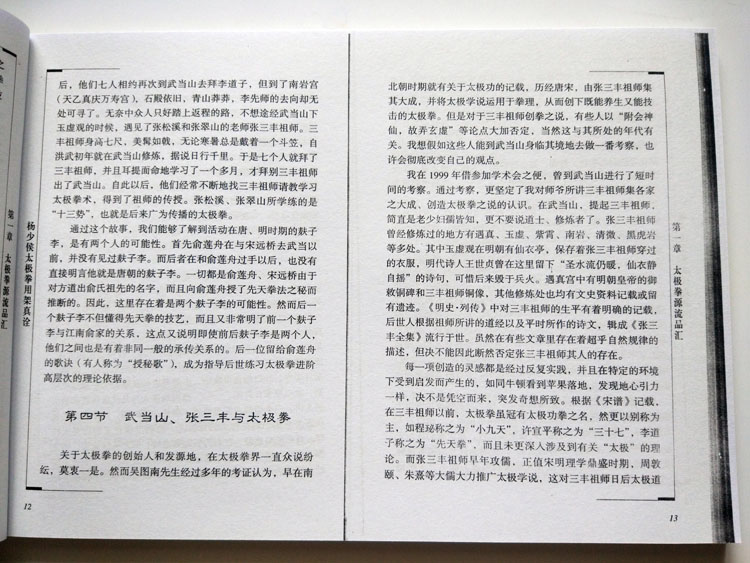 后，他们七人相约再次到武当山去拜李道子，但到了南岩宫
（天乙真庆万寿宫），石殿依旧，青山莽莽，李先师的去向却无
处可寻了。无奈中众人只好踏上返程的路，不想途经武当山下
玉虚观的时候，遇见了张松溪和张翠山的老师张三丰祖师。三
丰祖师身高七尺，美髯如戟，无论寒暑总是戴着一个斗笠，自
洪武初年就在武当山修炼，据说日行千里。于是七个人就拜了
三丰祖师，并且耳提面命地学习了一个多月，才拜别三丰祖师
出了武当山。自此以后，他们经常不断地找三丰祖师请教学习
太极拳术，得到了祖师的传授。张松溪、张翠山所学练的是
“十三势”，也就是后来广为传播的太极拳。
通过这个故事，我们能够了解到活动在唐、明时期的麸子
李，是有两个人的可能性。首先俞莲舟在与宋远桥去武当以
前，并没有见过麸子李。而后者在和俞莲舟过手以后，也没有
直接明言他就是唐朝的麸子李。一切都是俞莲舟、宋远桥由于
对方道出俞氏祖先的名字，而且向俞莲舟授了先天拳法之秘而
推断的。因此，这里存在着是两个麸子李的可能性。然而后一
个麸子李不但懂得先天拳的技艺，而且又非常明了前一个麸子
李与江南俞家的关系，这点又说明即使前后麸子李是两个人，
他们之间也是有着非同一般的承传关系的。后一位留给俞莲舟
的歌诀（有人称为“授秘歌”），成为指导后世练习太极拳进阶
高层次的理论依据。
第四节 武当山、张三丰与太极拳
关于太极拳的创始人和发源地，在太极拳界一直众说纷
纭，莫衷一是。然而吴图南先生经过多年的考证认为，早在南
12
杨少侯太极拳用架真诠
第一章 太极拳源流品汇
北朝时期就有关于太极功的记载，历经唐宋，由张三丰祖师集
其大成，并将太极学说运用于拳理，从而创下既能养生又能技
击的太极拳。但是对于三丰祖师创拳之说，有些人以“附会神
仙，故弄玄虚”等论点大加否定，当然这与其所处的年代有
关。我想假如这些人能到武当山身临其境地去做一番考察，也
许会彻底改变自己的观点。
我在1999年借参加学术会之便，曾到武当山进行了短时
间的考察。通过考察，更坚定了我对师爷所讲三丰祖师集各家
之大成、创造太极拳之说的认识。在武当山，提起三丰祖师，
简直是老少妇孺皆知，更不要说道士、修炼者了。张三丰祖师
曾经修炼过的地方有遇真、玉虚、紫霄、南岩、清微、黑虎岩
等多处。其中玉虚观在明朝有仙衣亭，保存着张三丰祖师穿过
的衣服，明代诗人王世贞曾在这里留下“圣水流仍暖，仙衣静
自摇”的诗句，可惜后来毁于兵火。遇真宫中有明朝皇帝的御
敕铜碑和三丰祖师铜像，其他修炼处也均有文史资料记载或留
有遗迹。《明史·列传》中对三丰祖师的生平有着明确的记载，
后世人根据祖师所讲的道经以及平时所作的诗文，辑成《张三
丰全集》流行于世。虽然在有些文章里存在着超乎自然规律的
描述，但决不能因此断然否定张三丰祖师其人的存在。
每一项创造的灵感都是经过反复实践，并且在特定的环境
下受到启发而产生的，如同牛顿看到苹果落地，发现地心引力
一样，决不是凭空而来，突发奇想所致。根据《宋谱》记载，
在三丰祖师以前，太极拳虽冠有太极功拳之名，然更以别称为
主，如程珌称之为“小九天”，许宣平称之为“三十七”，李道
子称之为“先天拳”，而且未更深入涉及到有关“太极”的理
论。而张三丰祖师早年攻儒，正值宋明理学鼎盛时期，周敦
颐、朱熹等大儒大力推广太极学说，这对三丰祖师日后太极道
第一章 太极拳源流品汇
13